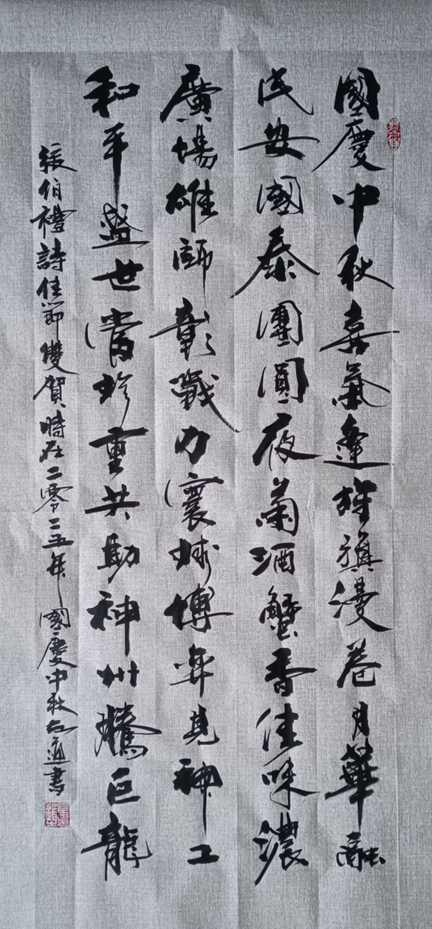 國慶中秋喜氣逢旌旗漫卷月華融
民安國泰團圓夜菊酒蟹香佳味濃
廣場雄師彰戰力寰球博弈見神工
和平盛世當珍重共助神州騰巨龍
張伯禮詩佳節雙賀時在二零二五年國慶中秋書